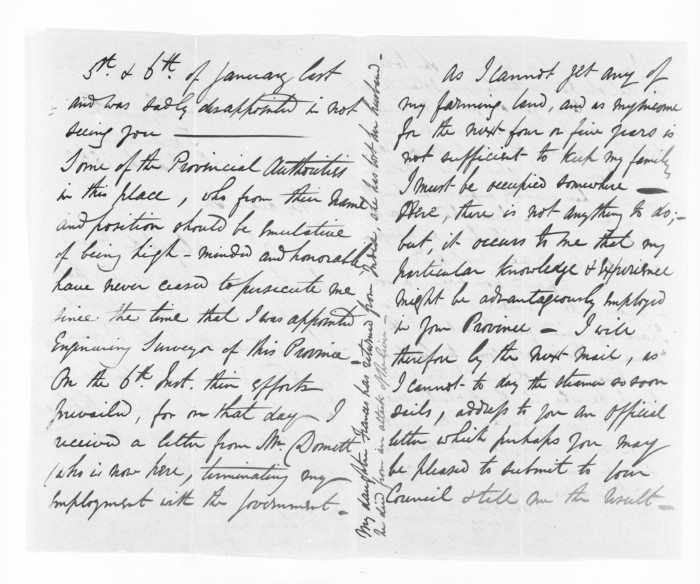 5th. & 6th. of January last
- and was sadly disappointed in not
seeing you
Some of the Provincial Authorities
in this place, who from their name
and position should be emulative
of being high-minded and honorable
have never ceased to persecute me
since the time that I was appointed
Engineering Surveyor of this Province -
On the 6th Inst. their efforts
prevailed, for on that day I
received a letter from Mr Domett
(who is now here, terminating my
employment with the Government -
My daughter Frances has returned from India, she has lost her husband -
he died from an attack of the liver -
As I cannot get any of
my farming land, and as my income
for the next four or five years is
not sufficient to keep my family,
I must be occupied somewhere -
Here, there is not anything to do; -
but, it occurs to me that my
particular knowledge & experience
might be advantageously employed
in your Province - I will
therefore by the next mail, as
I cannot to day the steamer so soon
sails, address to you an Official
letter which perhaps you may
be pleased to submit to your
Council & tell me the result -